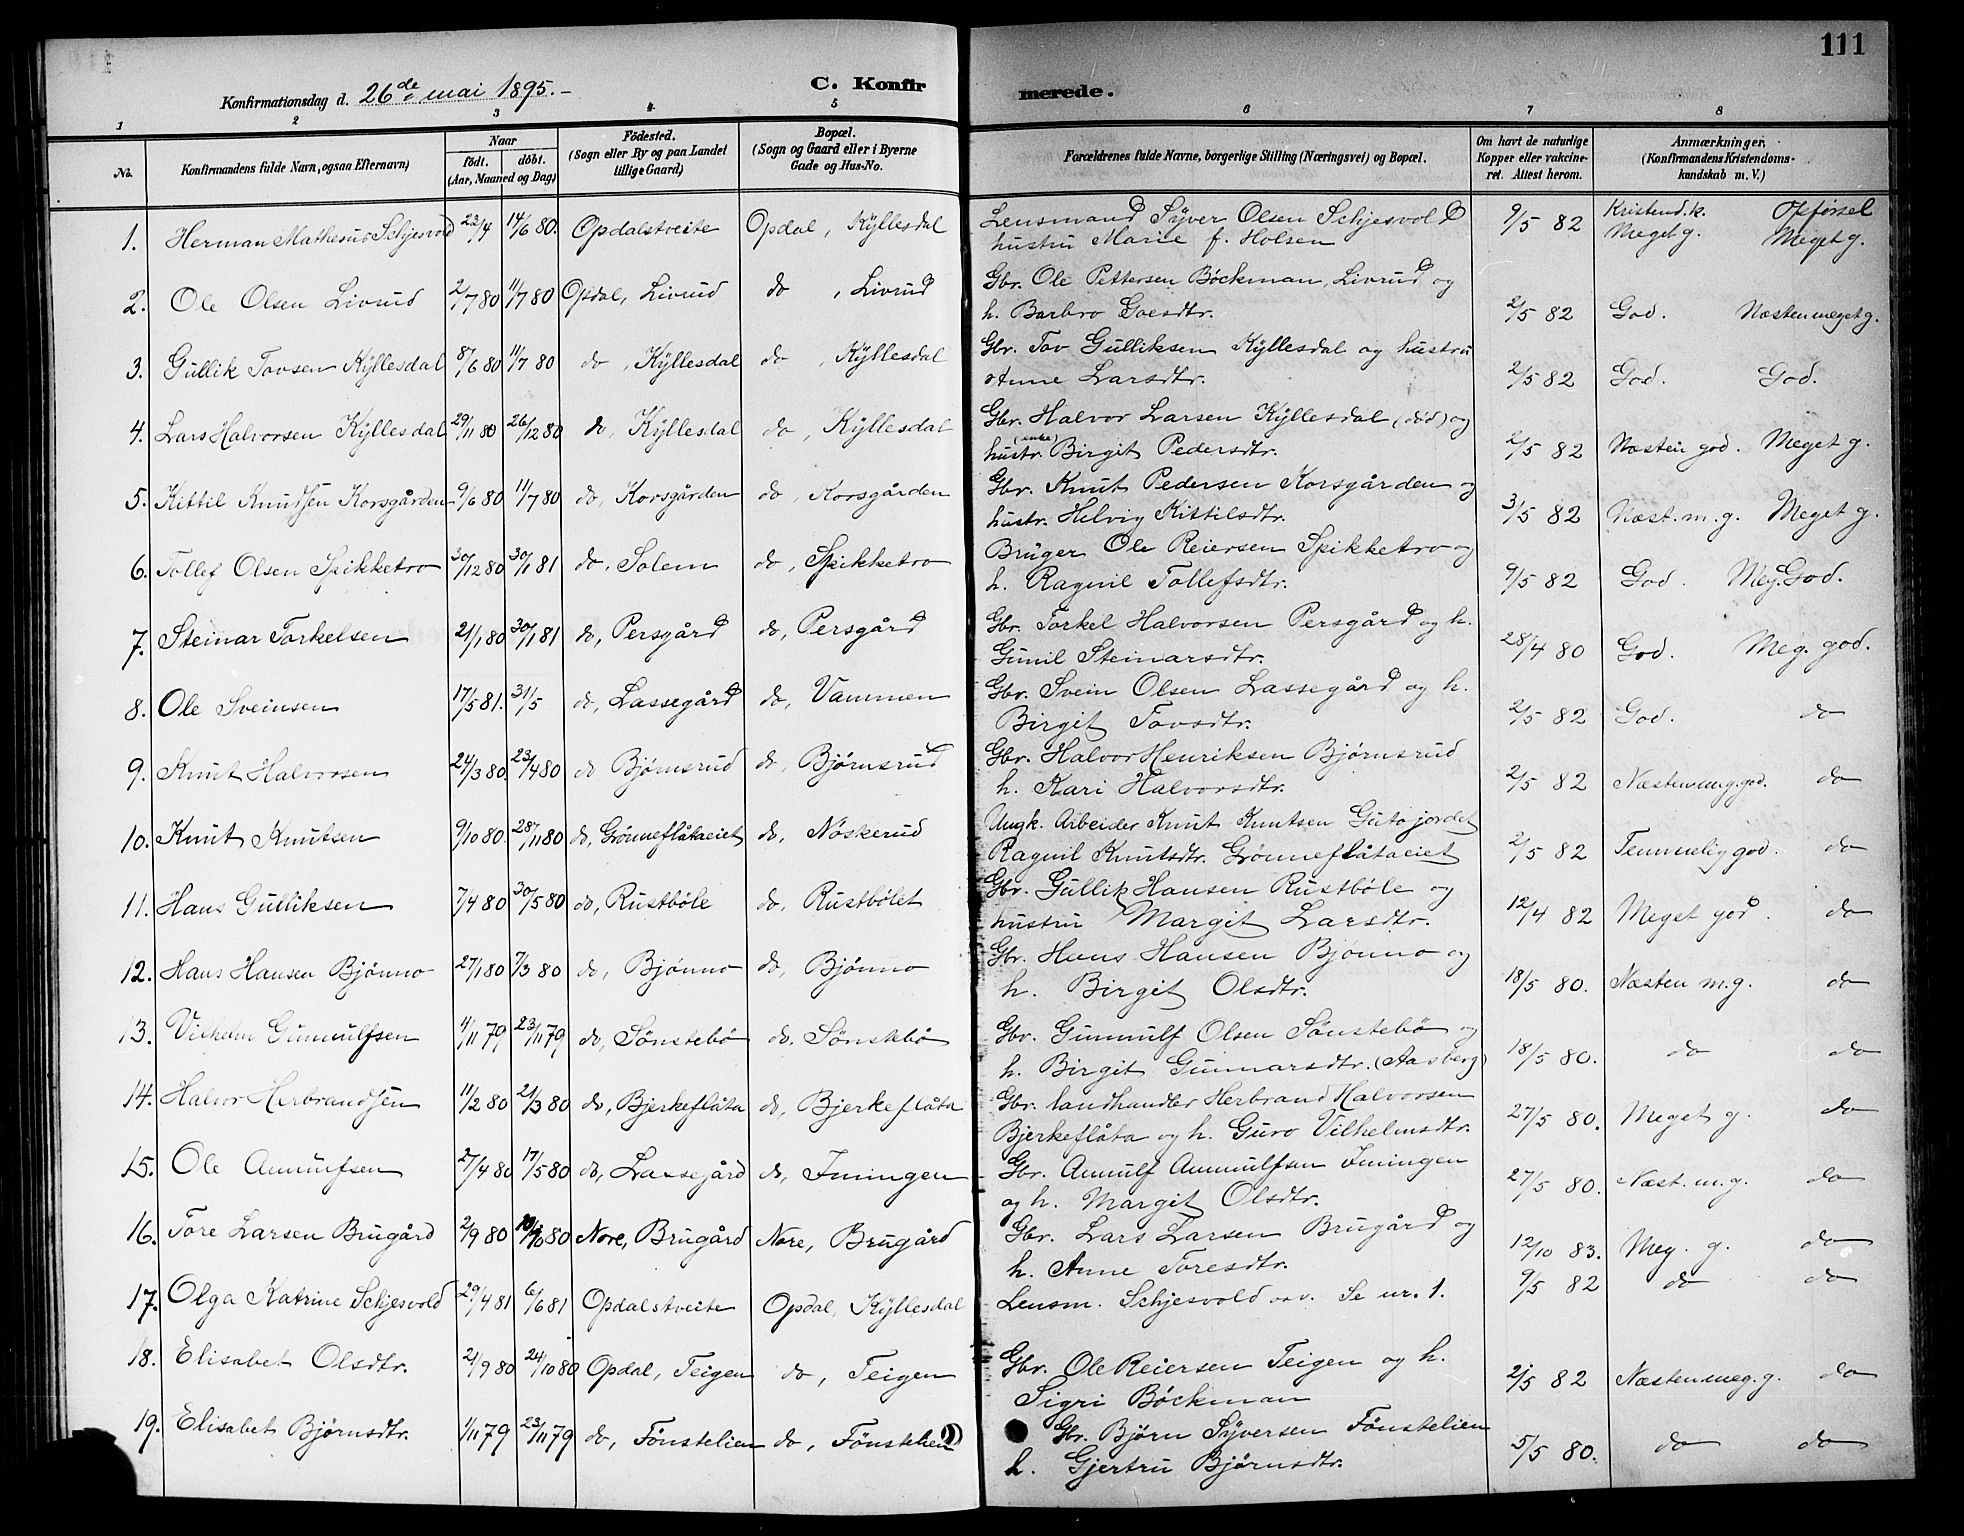 111
Konfirmationsdag d. 26de mai 1895.-
C. Konfir
merede.
1 2 3 4 5 6 7 8
No. Konfirmandens fulde Navn, ogsaa Efternavn) Naar födt. döbt. (Aar, Maaned og Dag) Födested. (Sogn eller By og paa Landet tillige Gaard) Bopæl. (Sogn og Gaard eller i Byerne Gade og Hus-No. Forældrenes fulde Navne, borgerlige Stilling (Næringsvei) og Bopæl. Om havt de naturlige Kopper eller vakcineret. Attest herom. Anmærkninger. (Konfirmandens Kristendomskundskab m. V.)
Kristend.k. Opførsel
1. Herman Matheus Schjesvold 23/4 14/6 80. Opdalstveite Opdal, Kÿllesdal Lensmand Sÿver Olsen Schjesvold 9/5 82 Meget g. Meget g.
hustru Marie f. Holsen
2. Ole Olsen Livrud 2/7 80 11/7 80 Opdal, Livrud do, Livrud Gbr. Ole Pettersen Böckman, Livrud og
h. Barbro Goesdtr. 2/5 82 God. Næsten meget g.
3. Gullik Tovsen Kÿllesdal 8/6 80 11/7 80 do, Kÿllesdal do, Kÿllesdal Gbr. Tov Gulliksen Kÿllesdal og hustru
Anne Larsdtr. 2/5 82 God. God.
4. Lars Halvorsen Kÿllesdal 29/11 80 26/12 80 do, Kÿllesdal do, Kÿllesdal Gbr. Halvor Larsen Kÿllesdal (död) og
hustr. (enke) Birgit Pedersdtr. 2/5 82 Næsten god. Meget g.
5. Kittil Knudsen Korsgården 9/6 80 11/7 80 do, Korsgården do, Korsgården Gbr. Knut Pedersen Korsgården og
hustr. Helvig Kittilsdtr. 3/5 82 Næst. m.g. Meget g.
6. Tollef Olsen Spikketro 30/12 80 30/1 81 do, Solem do, Spikketro Brüger Ole Reiersen Spikketro og
h. Ragnil Tollefsdtr. 9/5 82 God. Meg. God.
7. Steinar Torkelsen 21/1 80 30/1 81 do, Persgård do, Persgård Gbr. Torkel Halvorsen Persgård og h.
Gunil Steinarsdtr. 28/4 80 God. Meg. god.
8. Ole Sveinsen 17/5 81. 31/5 do, Lassegård do, Vammen Gbr. Svein Olsen Lassegård og h.
Birgit Tovsdtr. 2/5 82 God. do
9. Knut Halvorsen 24/3 80 23/4 80 do Bjørnsrud do, Bjørnsrud Gbr. Halvor Henriksen Bjørnsrud
h. Kari Halvorsdtr. 2/5 82 Næsten mg. god. do
10. Knut Knutsen 9/10 80. 28/11 80 do, Grönneflåtaeiet do, Nöskerud Ungk. Arbeider Knut Knutsen Gutujordet
Ragnil Knutsdtr. Grönneflåtaeiet 2/5 82 Temmelig god. do
11. Hans Gulliksen 7/4 80 30/5 80 do, Rustböle do, Rustbölet Gbr. Gullik Hansen Rustböle og
hustru Margit Larsdtr. 12/4 82 Meget god. do
12. Hans Hansen Bjönno 27/1 80 7/3 80 do, Bjönno do, Bjönno Gbr. Hans Hansen Bjönno og
h. Birgit Olsdtr. 18/5 80. Næsten m.g. do
13. Vilhelm Gunnulfsen 4/11 79 23/11 79 do, Sönstebö do, Sönstebö Gbr. Gunnulf Olsen Sönstebö og
h. Birgit Gunnarsdtr. (Aasberg) 18/5 80. do do
14. Halvor Herbrandsen 11/2 80 21/3 80 do, Bjerkeflåta do, Bjerkeflåta Gbr. landhandler Herbrand Halvorsen
Bjerkeflåta og h. Guro Vilhelmsdtr. 27/5 80. Meget g. do
15. Ole Annulfsen 27/4 80 17/5 80 do, Lassegård do, Imingen Gbr. Annulf Annulfsen Imingen
og h. Margit Olsdtr. 27/5 80. Næst. m.g. do
16. Tore Larsen Brugård 2/9 80 10/10 80 Nore, Brugård Nore, Brugård Gbr. Lars Larsen Brugård og
h. Anne Toresdtr. 12/10 83. Meg. g. do
17. Olga Katrine Schjesvold 29/4 81 6/6 81 Opdalstveite Opdal, Kÿllesdal Lensm. Schjesvold osv. Se nr. 1. 9/5 82 do do
18. Elisabet Olsdtr. 2/9 80 24/10 80 Opdal, Teigen do, Teigen Gbr. Ole Reiersen Teigen og h.
Sigri Böckman 2/5 82 Næsten meg. g. do
19. Elisabet Bjørnsdtr. 1/11 79 23/11 79 do, Fönstelien do, Fönstelien Gbr. Bjørn Sÿversen Fönstelien
h. Gjertru Bjørnsdtr. 5/5 80. do do